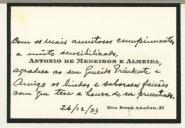 Com os mais amistosos cumprimentos
e muito sensibilizado,
ANTONIO DE MEDEIROS E ALMEIDA,
agradece ao seu Presidente e
Amigo os lindos e saborosos faisões
com que teve a de ser presenteado.
26/12/73 RUA ROSA ARAUJO, 31